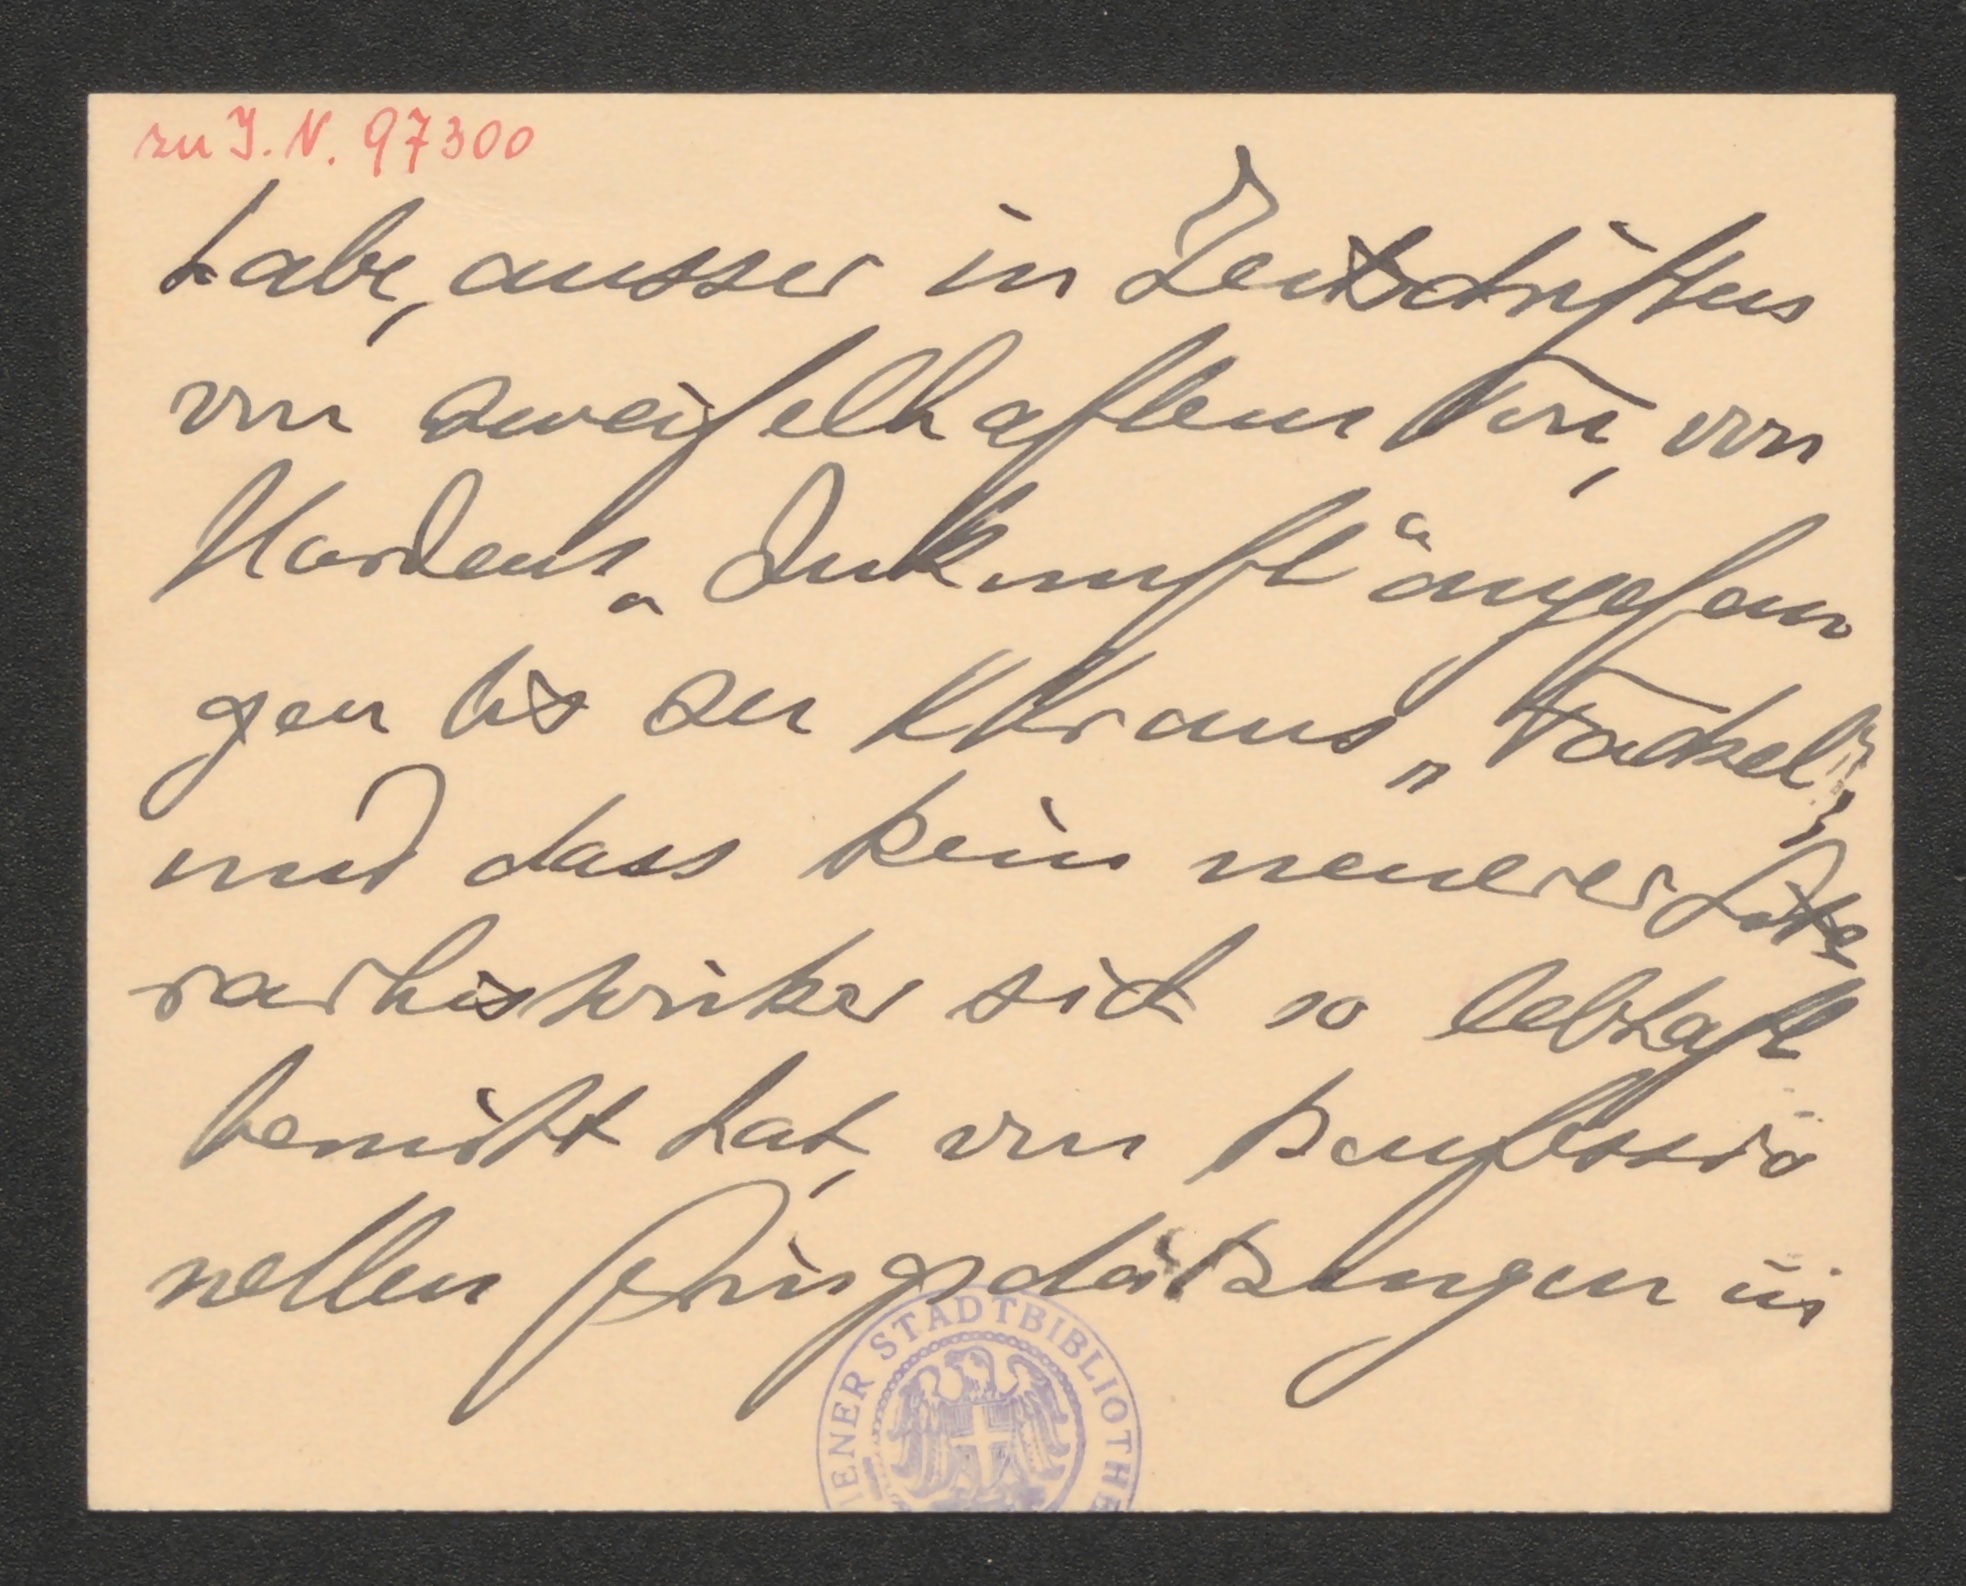 zu I. N. 97300
habe, ausser in Zeitschriften
von zweifelhaftem Ton, von
Hardens „Zukunft“ angefan
gen bis zu Kraus „Fackel“,
und dass kein neuerer Lite
rarhistoriker sich so lebhaft
bemüht hat, von konfessio
nellen
in
WIENER STADTBIBLIOTHEK